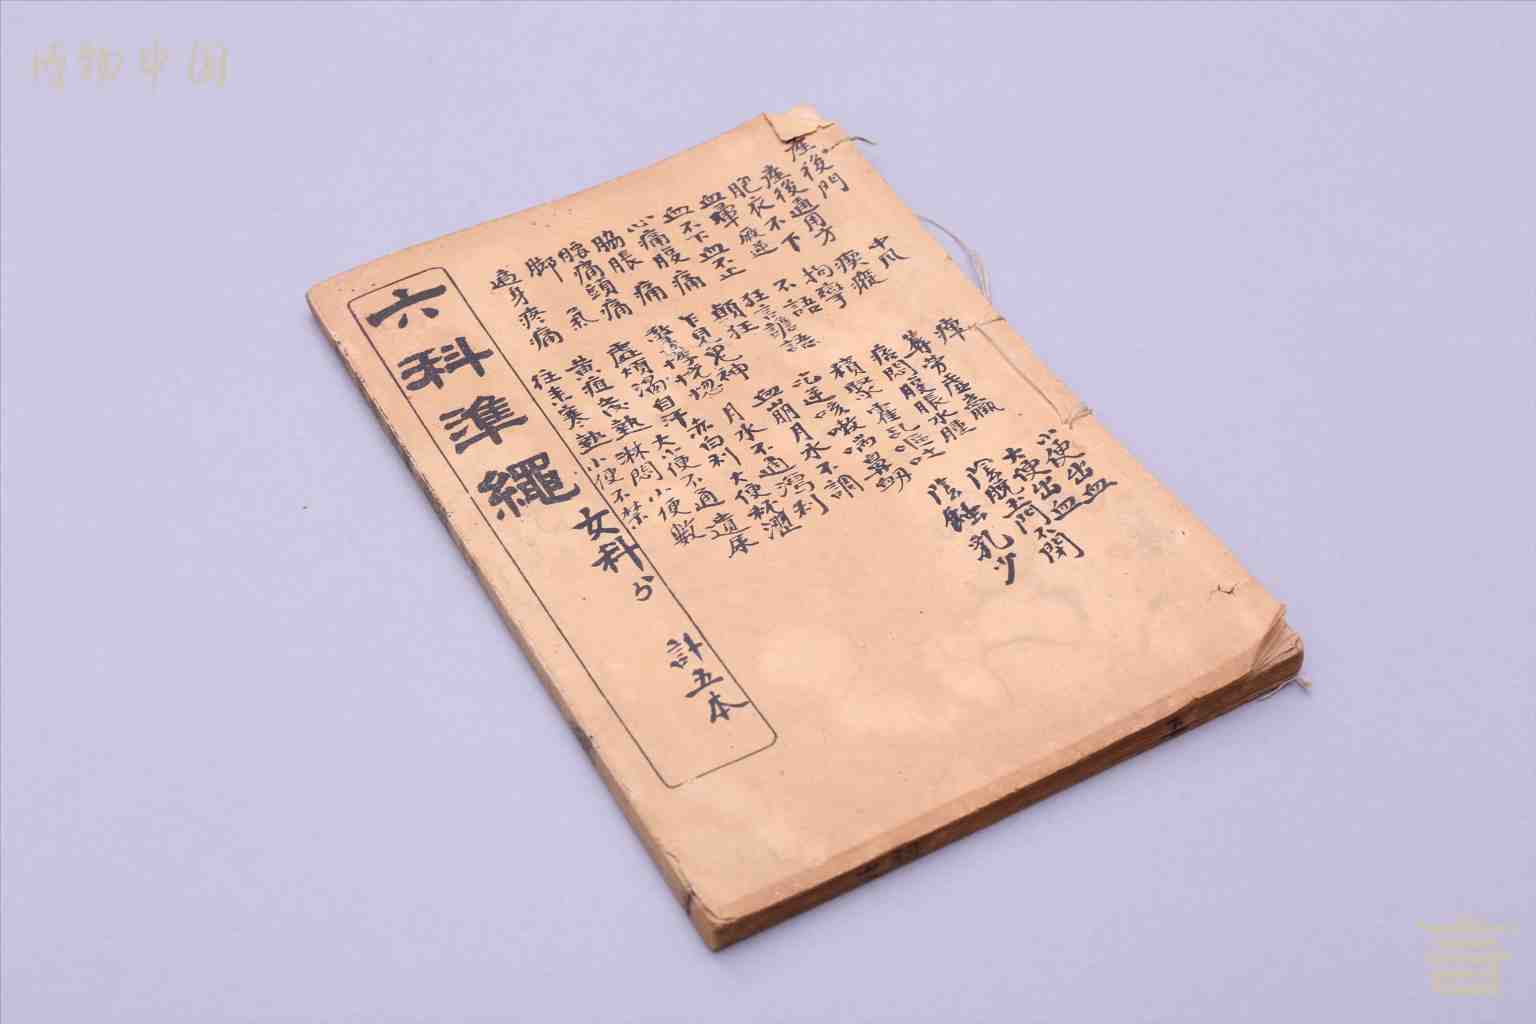 博物中国
產後門
產後通用方
胞衣不下
血暈 厥逆
血不下 血不止
心痛 腹痛
脇脹痛
腰痛 頭痛
脚氣
遍身疼痛
中風
瘈瘲
拘攣
不語
狂言譫語
顛狂
乍見鬼神
驚悸恍惚
虛煩 渴 自汗
黃疸 發熱
往來寒熱
痺
蓐勞虛羸
痞悶 腹脹水腫
積聚 霍亂 嘔吐
吃逆 咳嗽 喘 鼻衄
血崩 月水不調
月水不通 瀉利
赤白利 大便秘澀
大小便不通 遺尿
淋悶 小便數
小便不禁
小便出血
大便出血
陰脫 玉門不閉
陰蝕 乳少
六科準繩 女科 計五本